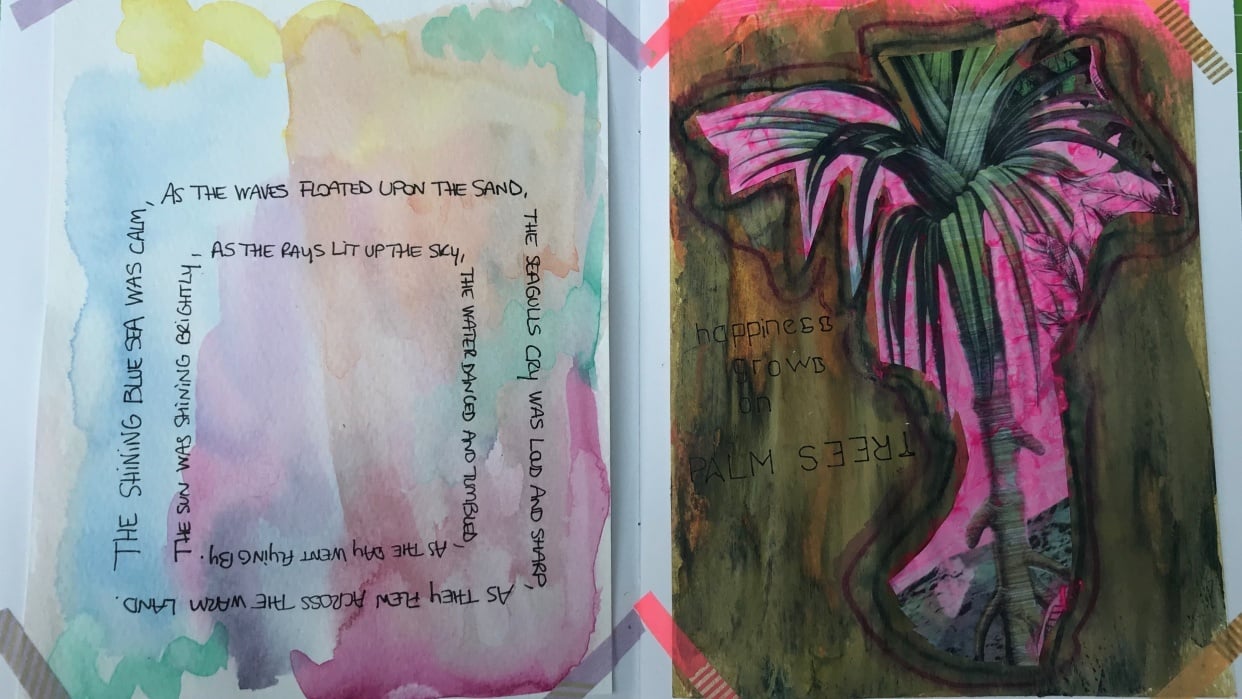 THE SHINING BLUE SEA WAS CALM,
AS THE WAVES FLOATED UPON THE SAND,
THE SEAGULLS CRY WAS LOUD AND SHARP,
AS THEY FLEW ACROSS THE WARM LAND.
THE SUN WAS SHINING BRIGHTLY,
AS THE RAYS LIT UP THE SKY,
THE WATER DANCED AND TUMBLED,
AS THE DAY WENT FLYING BY.
happiness
grows
on
PALM TREES